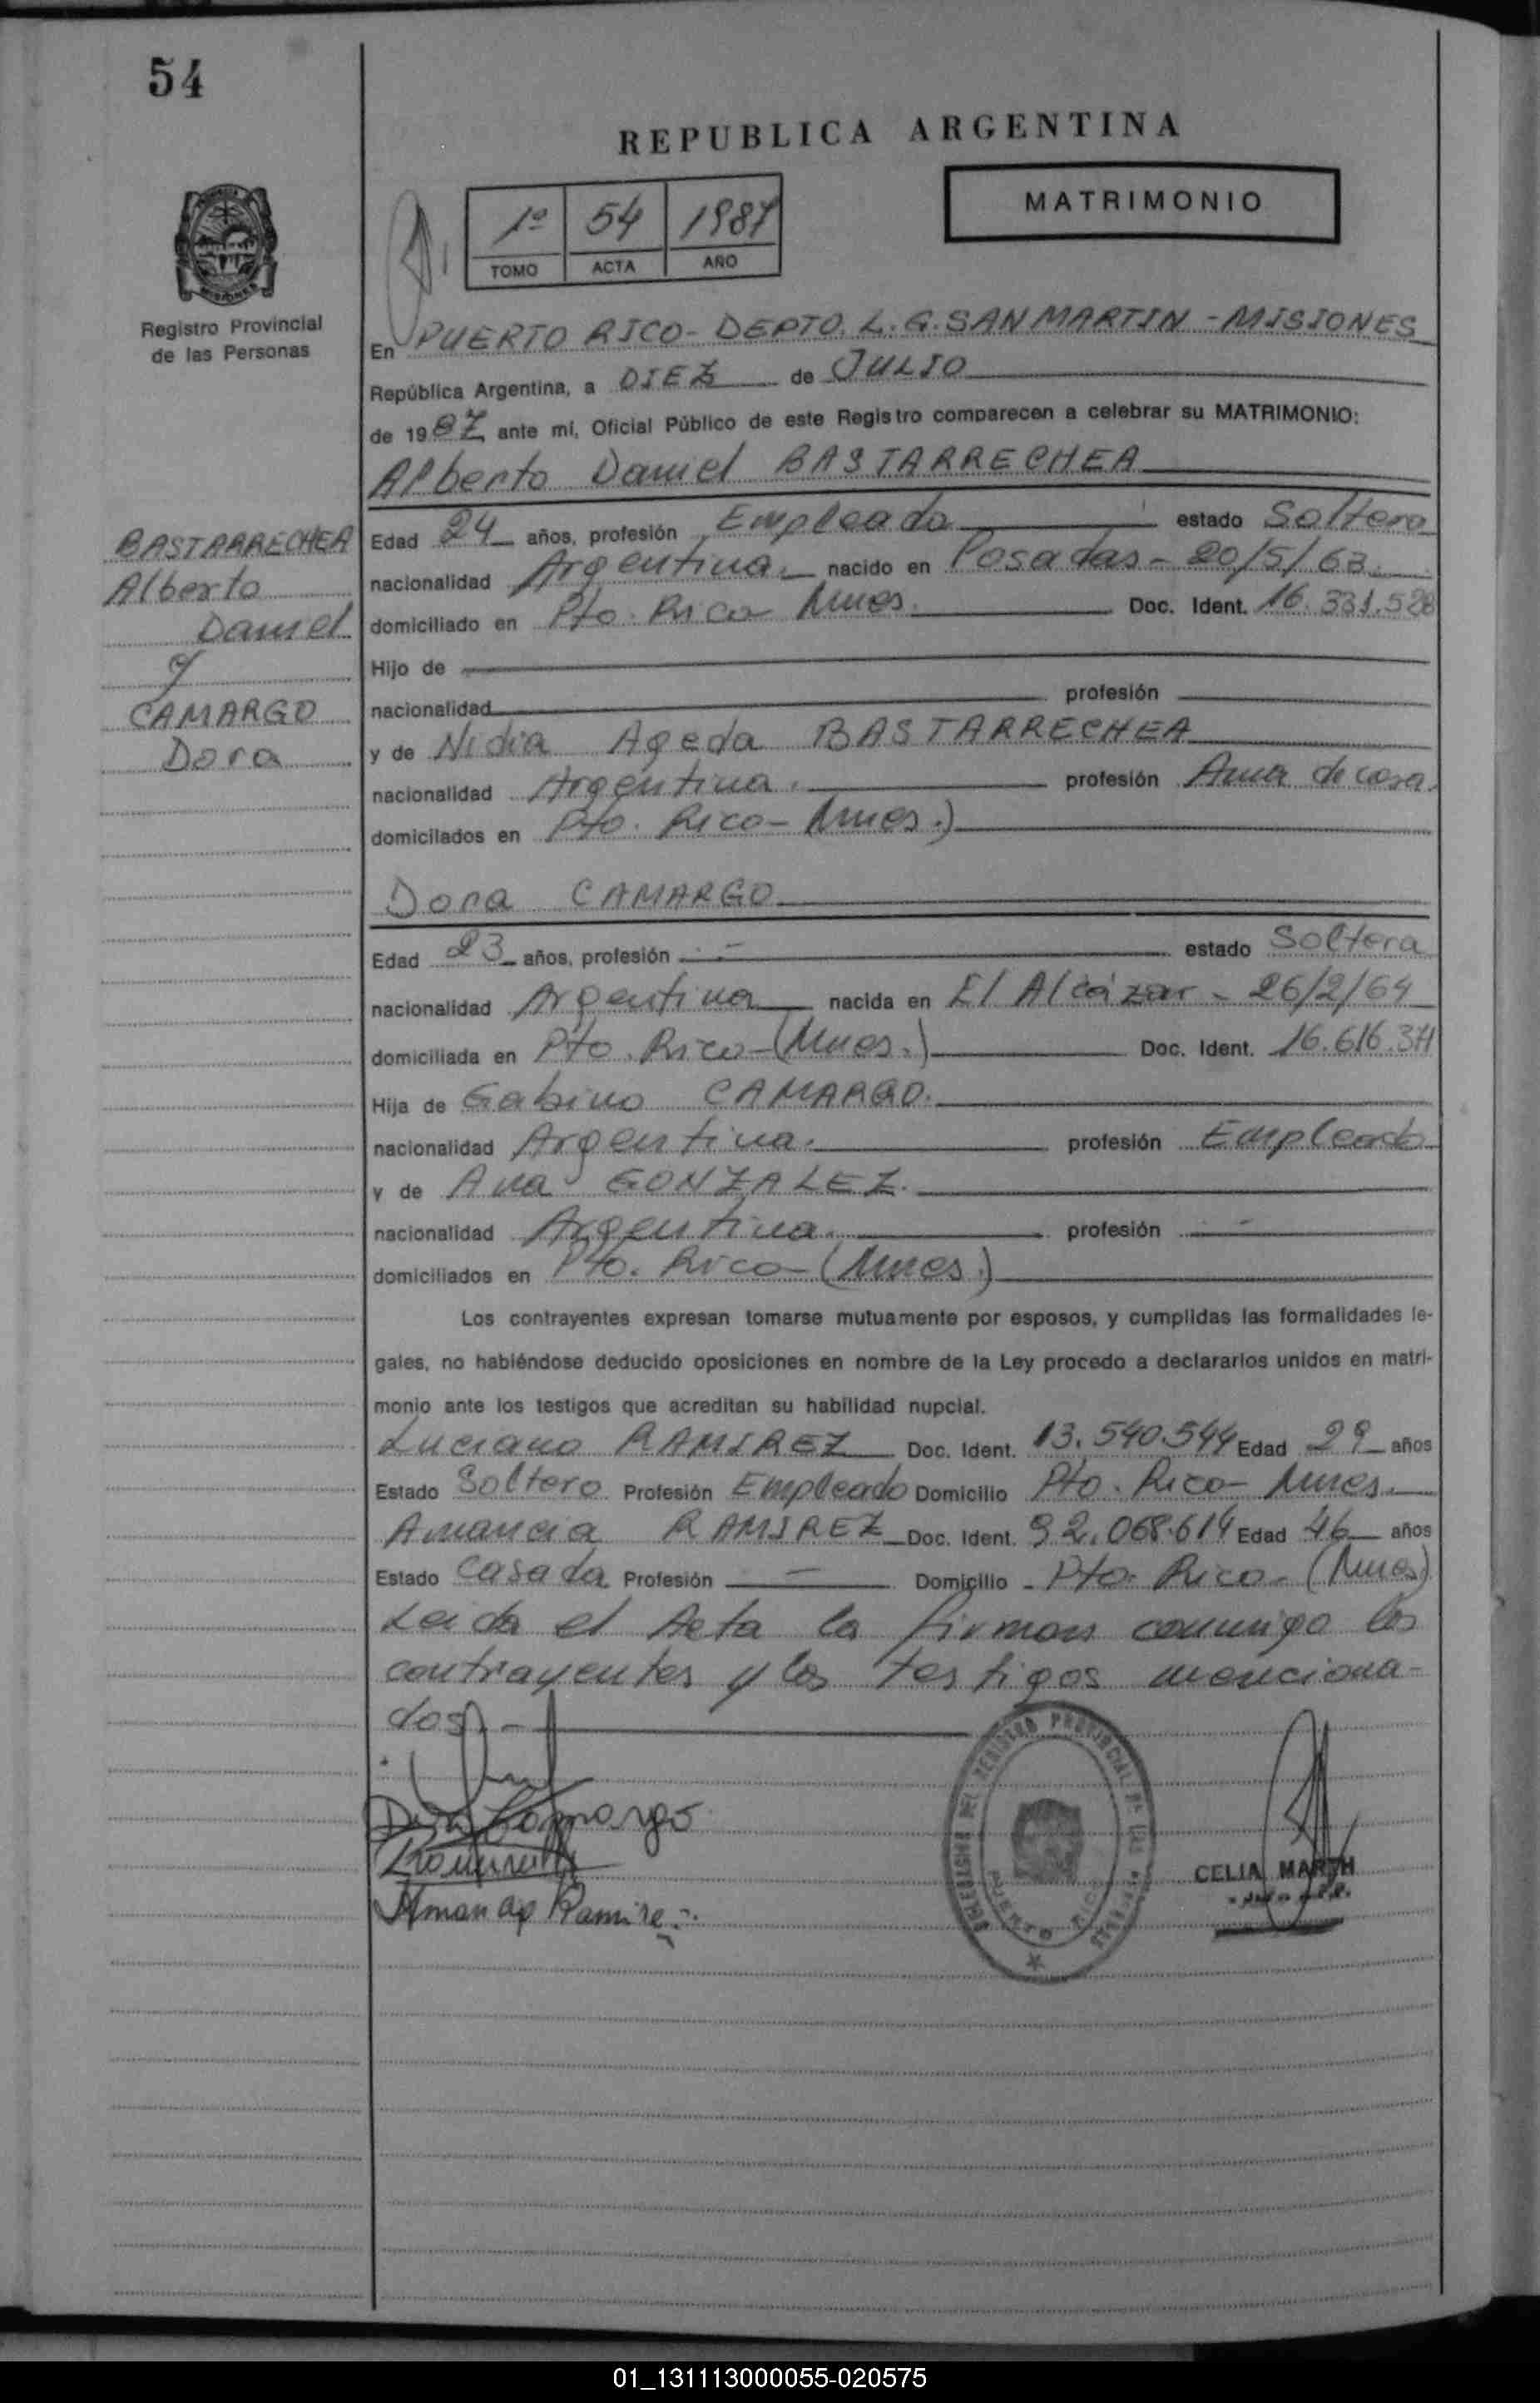 54
REPUBLICA ARGENTINA
MATRIMONIO
1º 54 1987
TOMO ACTA AÑO
Registro Provincial
de las Personas
En PUERTO RICO - DEPTO. L. G. SAN MARTIN - MISIONES
República Argentina, a DIEZ de JULIO
de 1987 ante mí, Oficial Público de este Registro comparecen a celebrar su MATRIMONIO:
Alberto Daniel BASTARRECHEA
BASTARRECHEA
Alberto
Daniel
y
CAMARGO
Dora
Edad 24 años, profesión Empleado estado Soltero
nacionalidad Argentina. nacido en Posadas - 20/5/63.
domiciliado en Pto. Rico Mnes. Doc. Ident. 16.331.528
Hijo de
nacionalidad profesión
y de Nidia Ageda BASTARRECHEA
nacionalidad Argentina. profesión Ama de casa.
domicilados en Pto. Rico - Mnes.)
Dora CAMARGO
Edad 23 años, profesión - estado Soltera
nacionalidad Argentina nacida en El Alcázar - 26/2/64
domiciliada en Pto. Rico - (Mnes.) Doc. Ident. 16.616.371
Hija de Gabino CAMARGO.
nacionalidad Argentina. profesión Empleado
y de Ana GONZALEZ.
nacionalidad Argentina. profesión -
domiciliados en Pto. Rico - (Mnes.)
Los contrayentes expresan tomarse mutuamente por esposos, y cumplidas las formalidades le-
gales, no habiéndose deducido oposiciones en nombre de la Ley procedo a declararlos unidos en matri-
monio ante los testigos que acreditan su habilidad nupcial.
Luciano RAMIREZ Doc. Ident. 13.540.544 Edad 29 años
Estado Soltero Profesión Empleado Domicilio Pto. Rico - Mnes.
Amancia RAMIREZ Doc. Ident. 92.068.614 Edad 46 años
Estado Casada Profesión - Domicilio - Pto. Rico - (Mnes)
Leida el Acta la firman conmigo los
contrayentes y los testigos menciona-
dos.-
Dora Camargo
Amancia Ramire
REGISTRO PROVINCIAL DE LAS
PUERTO RICO
CELIA MARTH
01_131113000055-020575